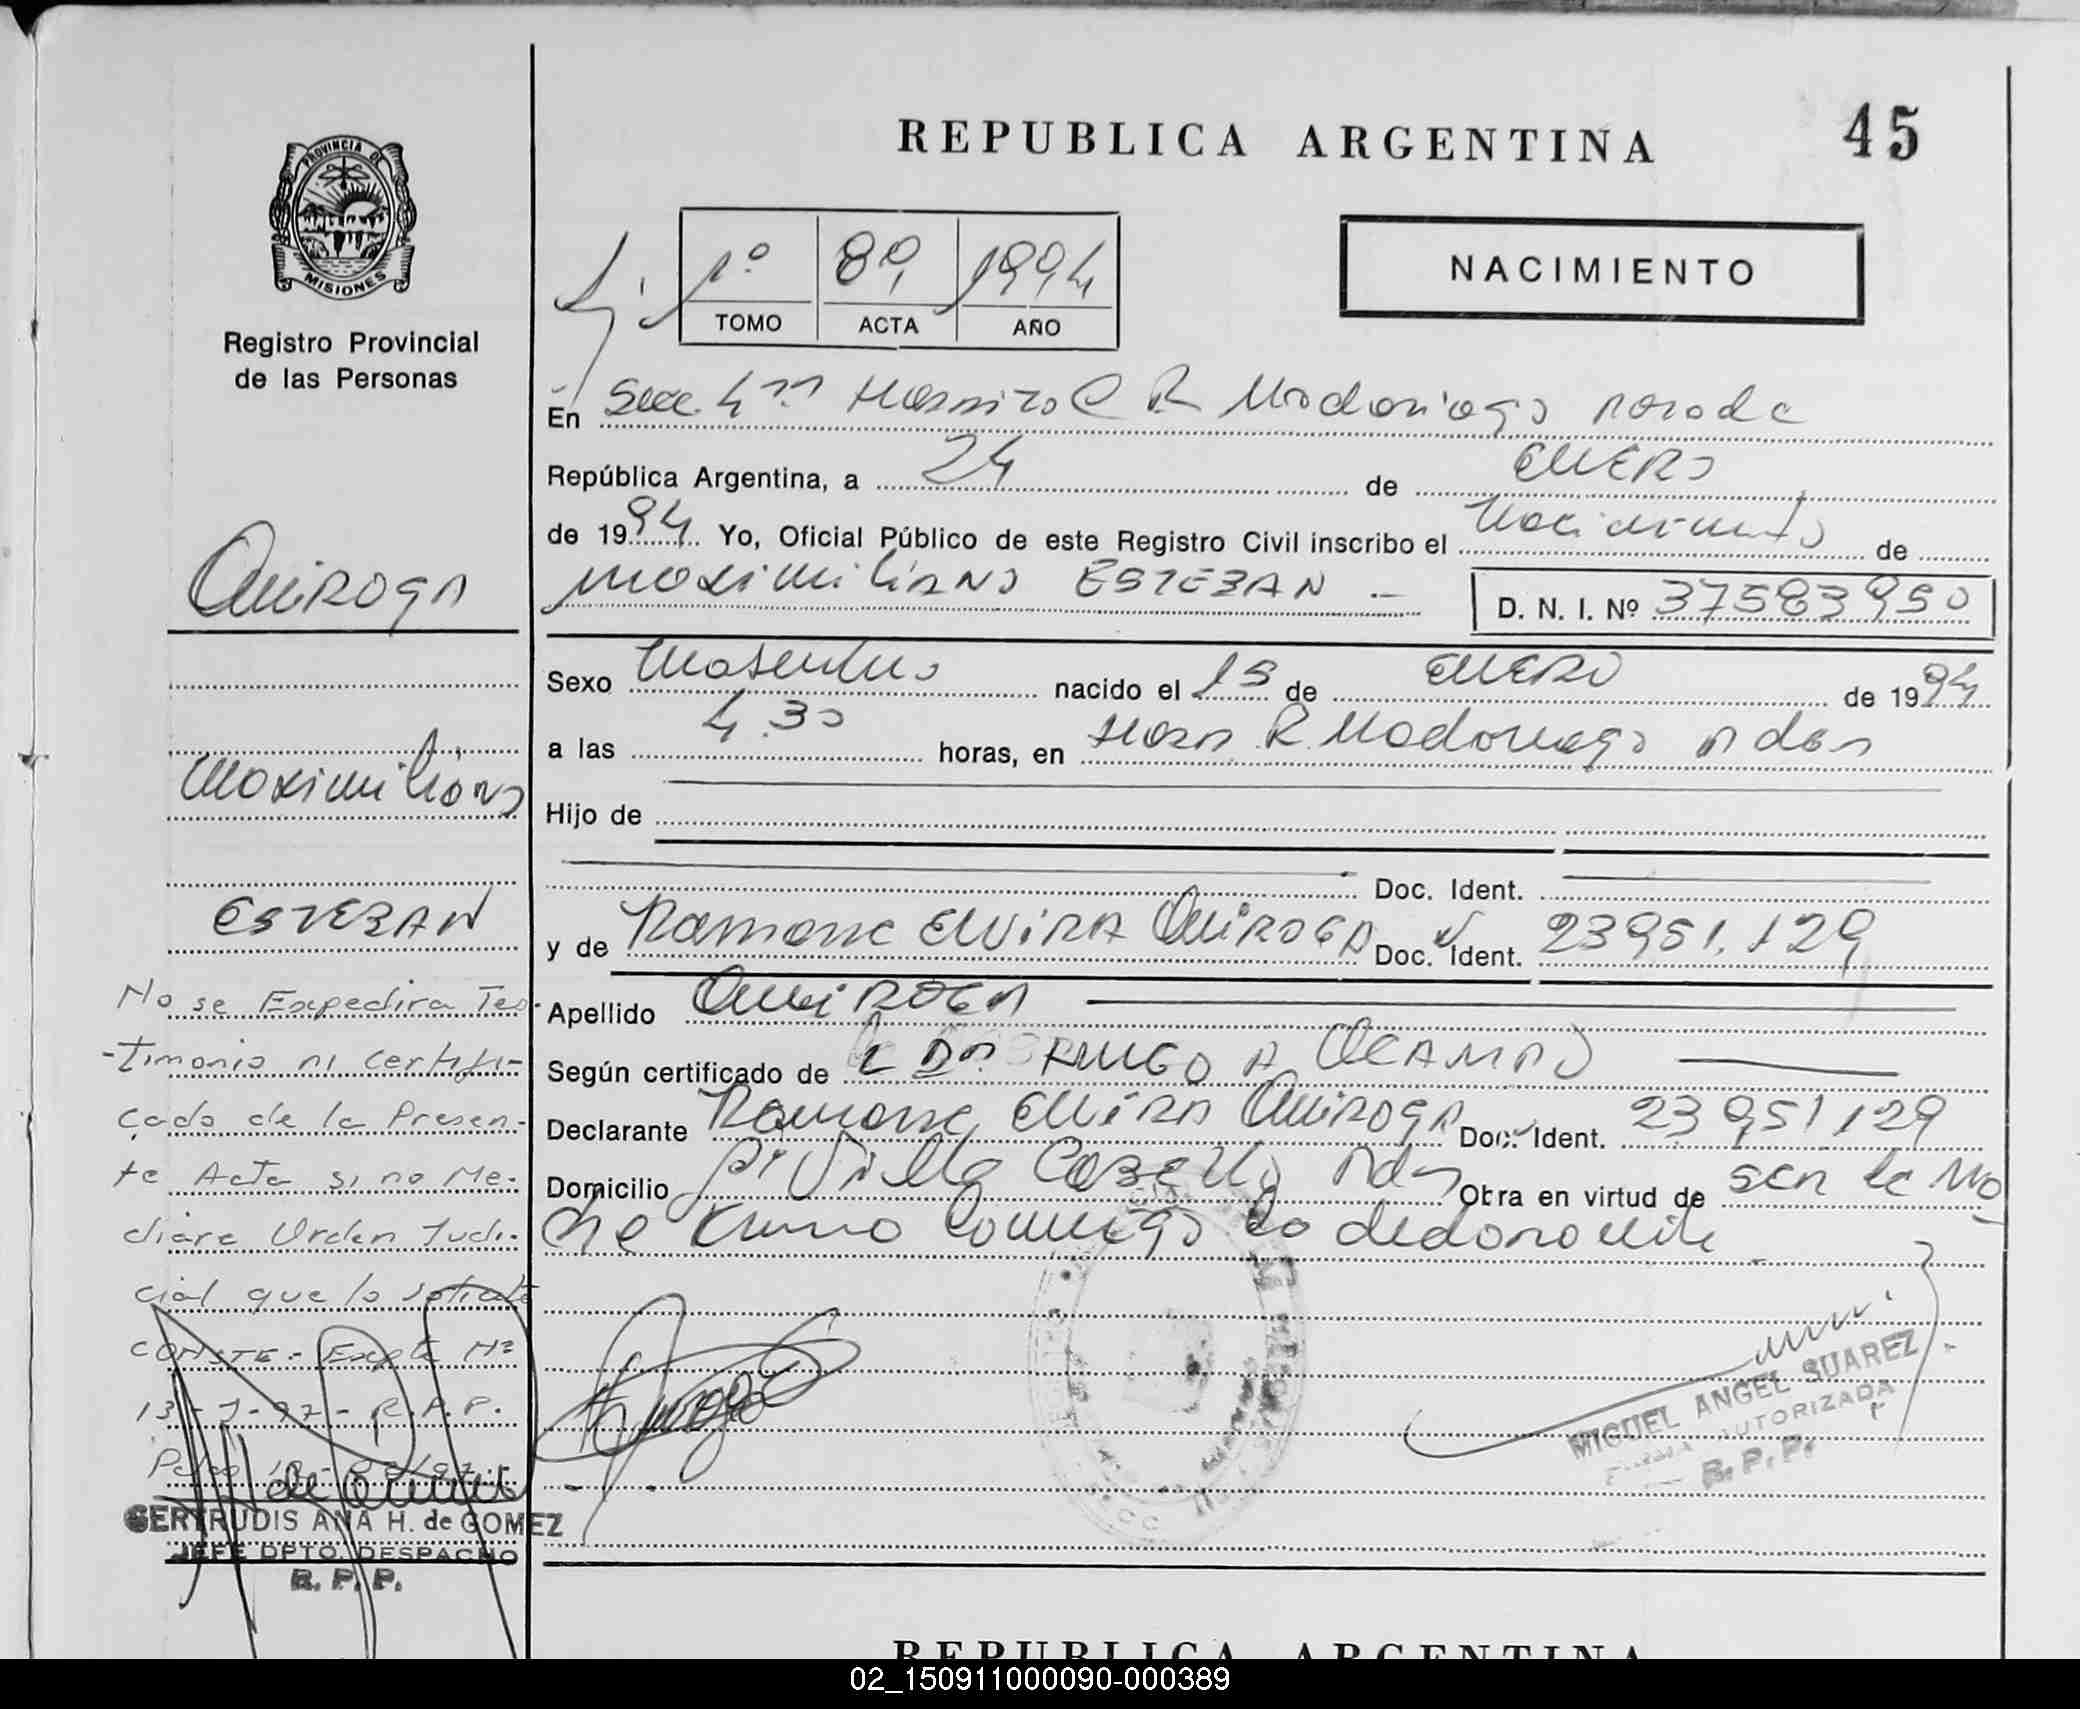 REPUBLICA ARGENTINA
45
PROVINCIA DE
MISIONES
Registro Provincial
de las Personas
1º 89 1994
TOMO ACTA AÑO
NACIMIENTO
En Secc. 4ta Hospital R Madariaga Posadas
República Argentina, a 24 de ENERO
de 1994 Yo, Oficial Público de este Registro Civil inscribo el Nacimiento de
MAXIMILIANO ESTEBAN
D. N. I. Nº 37583950
Sexo Masculino nacido el 15 de ENERO de 1994
a las 4.30 horas, en Hosp. R. Madariaga
Hijo de
Doc. Ident.
y de Ramona ELVIRA QUIROGA Doc. Ident. 23951.129
Apellido QUIROGA
Según certificado de Dr. HUGO A OCAMPO
Declarante Ramona ELVIRA QUIROGA Doc. Ident. 23951129
Domicilio Villa Cabello Obra en virtud de ser la Ma
dre
QUIROGA
MAXIMILIANO
ESTEBAN
No se Expedira Tes-
-timonio ni Certifi-
cado de la Presen-
te Acta si no Me-
diare Orden Judi-
cial que lo solicite
CONSTE.- Expte Nº
13-J-97- R.P.P.
GERTRUDIS ANA H. de GOMEZ
JEFE DPTO. DESPACHO
R. P. P.
MIGUEL ANGEL SUAREZ
FIRMA AUTORIZADA
R. P. P.
REPUBLICA ARGENTINA
02_150911000090-000389